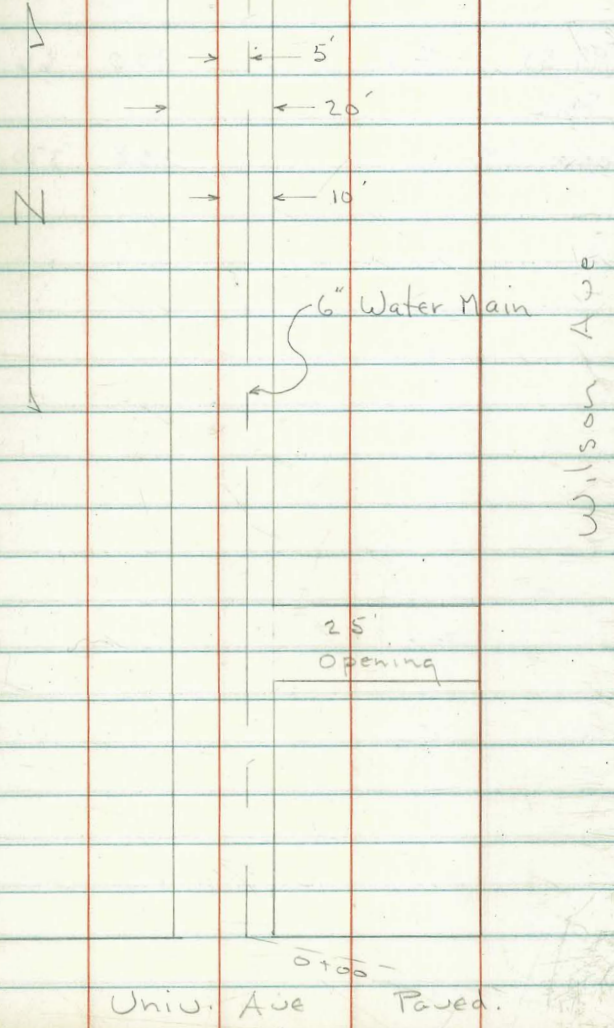 5'
20'
10'
N
6" Water Main
Wilson Ave
25'
Opening
0+00
Univ. Ave Paved.